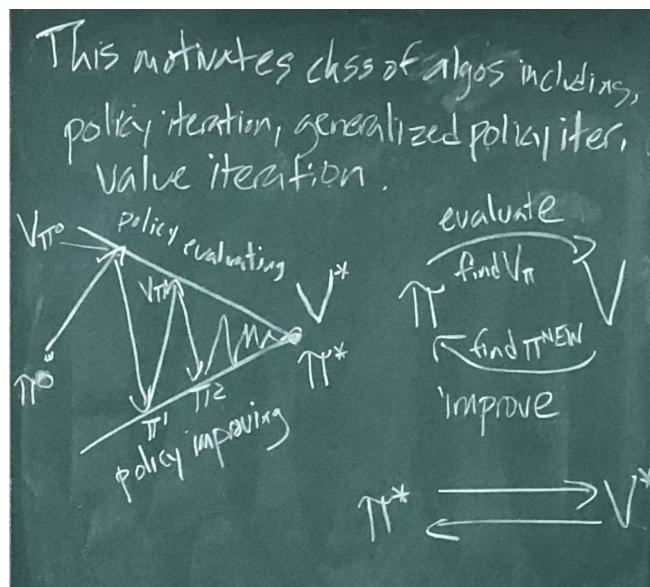 This motivates class of algos including,
policy iteration, generalized policy iter,
value iteration.
Vπ⁰
policy evaluating
Vπ¹
V*
π⁰
π*
π¹
π²
policy improving
evaluate
find Vπ
π
V
find π^NEW
improve
π*
V*